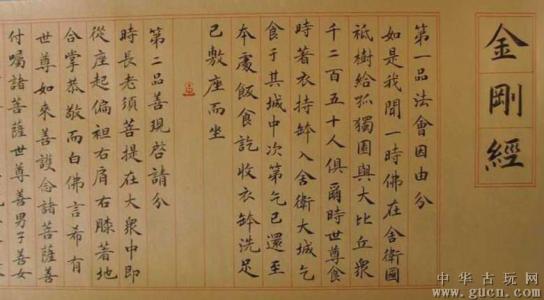 金剛經
第一品法會因由分
如是我聞一時佛在舍衛國
祇樹給孤獨園與大比丘衆
千二百五十人俱爾時世尊食
時著衣持缽入舍衛大城乞
食于其城中次第乞已還至
本處飯食訖收衣缽洗足
已敷座而坐
第二品善現啓請分
時長老須菩提在大衆中即
從座起偏袒右肩右膝著地
合掌恭敬而白佛言希有
世尊如來善護念諸菩薩善
付囑諸菩薩世尊善男子善女
中华古玩网
www.gucn.com